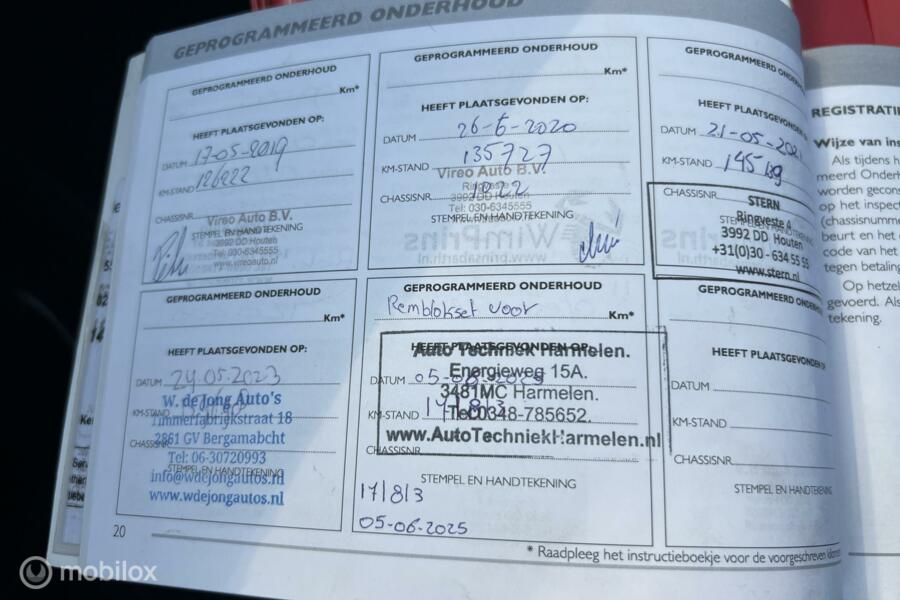 GEPROGRAMMEERD ONDERHOUD
GEPROGRAMMEERD ONDERHOUD
Km*
HEEFT PLAATSGEVONDEN OP:
DATUM 17-05-2019
KM-STAND 126222
CHASSISNR.
Vireo Auto B.V.
STEMPEL EN HANDTEKENING
3992 DD Houten
Tel: 030-6345555
www.vireo.nl
GEPROGRAMMEERD ONDERHOUD
Km*
HEEFT PLAATSGEVONDEN OP:
DATUM 26-6-2020
KM-STAND 135727
Vireo Auto B.V.
Ringveste
CHASSISNR. 1822
3992 DD Houten
Tel: 030-6345555
STEMPEL EN HANDTEKENING
WimPrins
GEPROGRAMMEERD ONDERHOUD
HEEFT PLAATSGEVONDEN OP:
DATUM 21-05-202
KM-STAND 145139
CHASSISNR.
STERN
Ringveste 4
3992 DD Houten
+31(0)30 - 634 55 55
www.stern.nl
GEPROGRAMMEERD ONDERHOUD
Km*
HEEFT PLAATSGEVONDEN OP:
DATUM 24.05.2023
W. de Jong Auto's
KM-STAND
Timmerfabriekstraat 18
2861 GV Bergambacht
CHASSISNR.
Tel: 06-30720993
STEMPEL EN HANDTEKENING
info@wdejongautos.nl
www.wdejongautos.nl
GEPROGRAMMEERD ONDERHOUD
Remblokset voor
Km*
HEEFT PLAATSGEVONDEN OP:
Auto Techniek Harmelen.
Energieweg 15A.
DATUM 05-06-2025
3481MC Harmelen.
KM-STAND 171813
Tel:0348-785652.
www.AutoTechniekHarmelen.nl
CHASSISNR.
STEMPEL EN HANDTEKENING
171813
05-06-2025
GEPROGRAMMEERD ONDERH
HEEFT PLAATSGEVONDEN OP:
DATUM
KM-STAND
CHASSISNR.
STEMPEL EN HANDTEKENING
20
* Raadpleeg het instructieboekje voor de voorgeschreven
REGISTRATI
Wijze van ins
Als tijdens h
meerd Onderh
worden gecons
op het inspect
(chassisnumme
beurt en het
code van het
tegen betaling
Op hetzel
gevoerd. Als
tekening.
mobilox